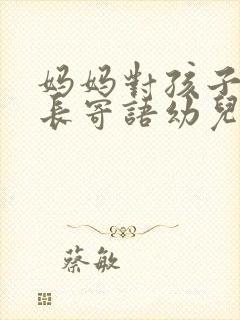 妈妈對孩子
長寄語幼兒
蔡敏